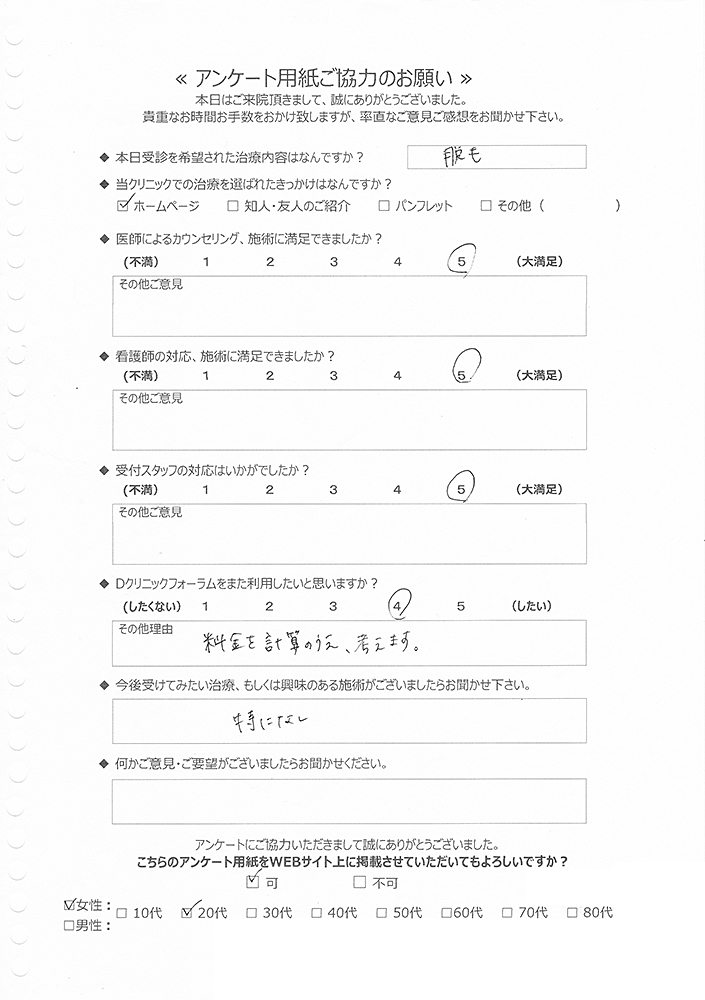 ≪ アンケート用紙ご協力のお願い ≫
本日はご来院頂きまして、誠にありがとうございました。
貴重なお時間お手数をおかけ致しますが、率直なご意見ご感想をお聞かせ下さい。
◆ 本日受診を希望された治療内容はなんですか？ 脱毛
◆ 当クリニックでの治療を選ばれたきっかけはなんですか？
☑ ホームページ □ 知人・友人のご紹介 □ パンフレット □ その他（ ）
◆ 医師によるカウンセリング、施術に満足できましたか？
(不満) 1 2 3 4 5 (大満足)
その他ご意見
◆ 看護師の対応、施術に満足できましたか？
(不満) 1 2 3 4 5 (大満足)
その他ご意見
◆ 受付スタッフの対応はいかがでしたか？
(不満) 1 2 3 4 5 (大満足)
その他ご意見
◆ Dクリニックフォーラムをまた利用したいと思いますか？
(したくない) 1 2 3 4 5 (したい)
その他理由
料金を計算のうえ、考えます。
◆ 今後受けてみたい治療、もしくは興味のある施術がございましたらお聞かせ下さい。
特になし
◆ 何かご意見・ご要望がございましたらお聞かせください。
アンケートにご協力いただきまして誠にありがとうございました。
こちらのアンケート用紙をWEBサイト上に掲載させていただいてもよろしいですか？
☑ 可 □ 不可
☑女性： □ 10代 ☑ 20代 □ 30代 □ 40代 □ 50代 □60代 □ 70代 □ 80代
□男性：